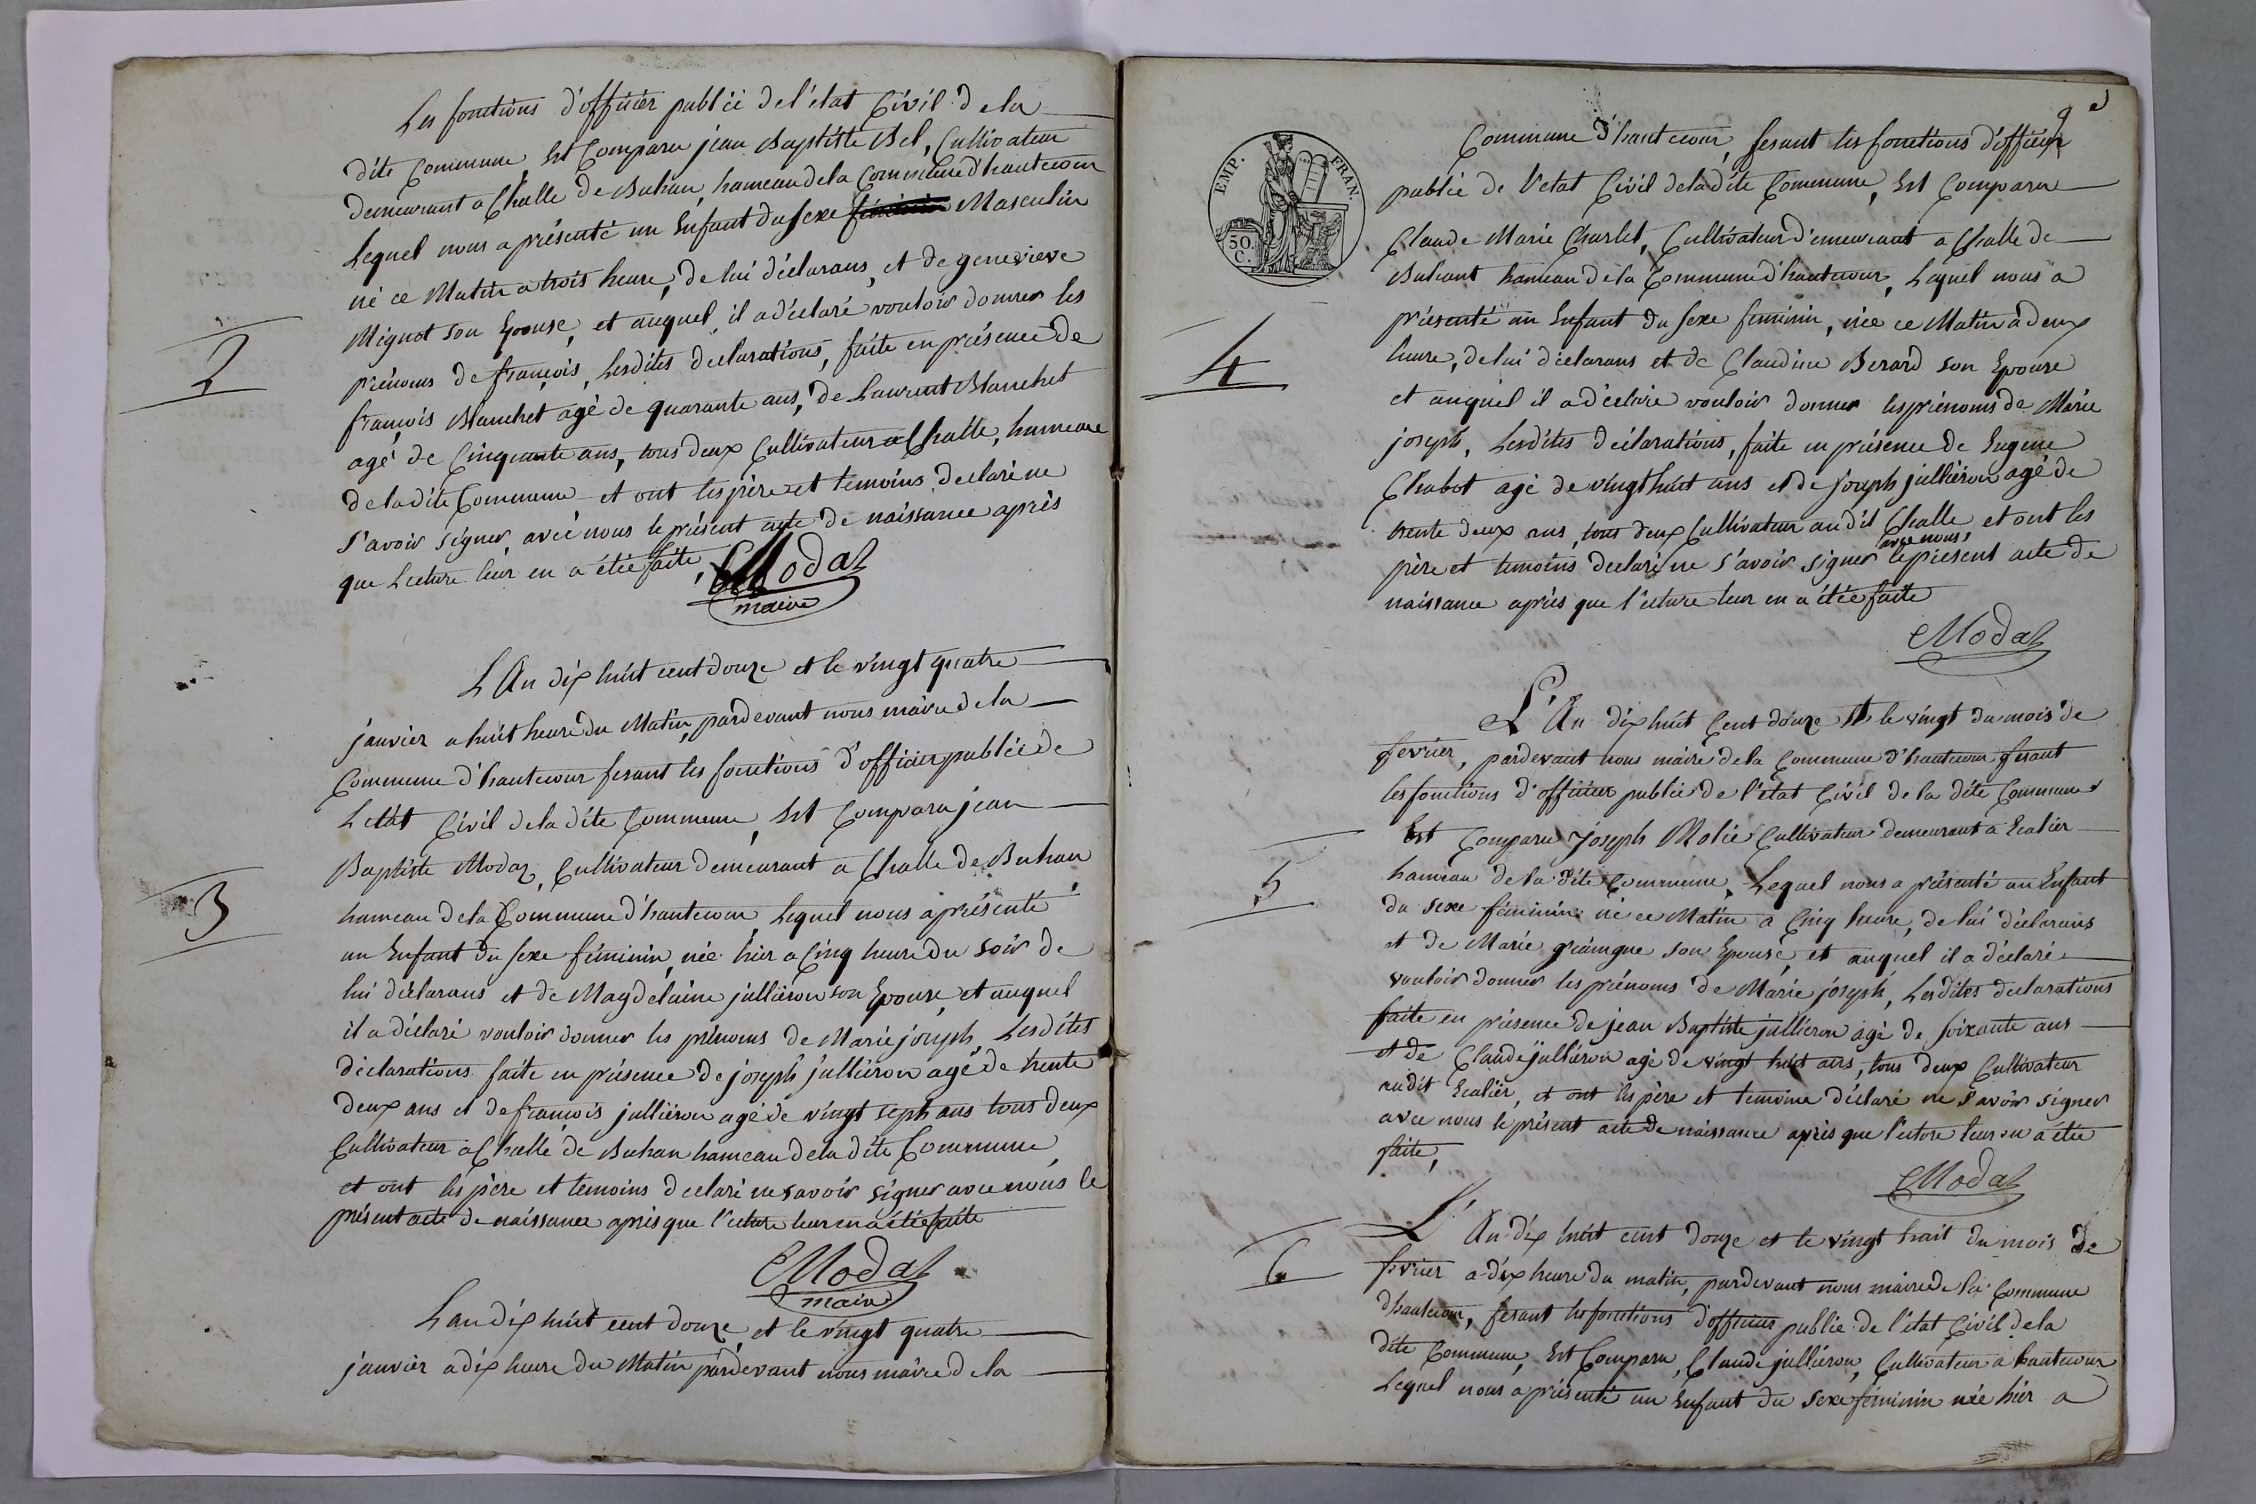 Les fonctions d'officier public de l'état Civil de la
dite Commune Est Comparu jean Baptiste Bel, Cultivateur
demeurant a Challe de Buhan, hameau de la Commune d'hautecour
Lequel nous a présenté un Enfant du sexe féminin Masculin
né ce Matin a trois heure, de lui déclarans, et de genevieve
Mignot son Epouse, et auquel il a déclaré vouloir donner les
2
prénoms de françois, Lesdites declarations, faite en présence de
françois Blanchet agé de quarante ans, de Laurent Blanchet
agé de Cinquante ans, tous deux Cultivateur a Challe, hameau
de la dite Commune et ont les père et temoins declaré ne
s'avoir signer, avec nous le présent acte de naissance après
que Lecture leur en a étée faite,
Modaz
maire
L'An dix huit cent douze et le vingt quatre
janvier a huit heure du Matin, pardevant nous maire de la
Commune d'hautecour fesant les fonctions d'officier publice de
L'état Civil de la dite Commune, Est Comparu jean
Baptiste Modaz, Cultivateur demeurant a Challe de Buhan
3
hameau de la Commune d'hautecour, Lequel nous a présenté
un Enfant du sexe féminin, née hier a Cinq heure du soir de
lui déclarans et de Magdelaine julliéron son Epouse, et auquel
il a déclaré vouloir donner les prénoms de Marie joseph, Lesdites
déclarations faite en présence de joseph julliéron agé de trente
deux ans et de françois julliéron agé de vingt sept ans tous deux
Cultivateur a Challe de Buhan hameau de la dite Commune,
et ont les père et temoins declaré ne savoir signer avec nous le
présent acte de naissance après que l'ecture leur en a étée faite
Modaz
maire
L'an dix huit cent douze, et le vingt quatre
janvier a dix heure du Matin pardevant nous maire de la
EMP. FRAN.
50
C.
Commune d'hautecour, fesant les fonctions d'officier
publice de l'etat Civil de la dite Commune, Est Comparu
Claude Marie Charlet, Cultivateur d'emeurant a Challe de
Buhant hameau de la Commune d'hautecour, Lequel nous a
présenté un Enfant du sexe feminin, née ce Matin a deux
4
heure, de lui déclarans et de Claudine Berard son Epouse
et auquel il a déclaré vouloir donner les prénoms de Marie
joseph, Lesdites déclarations, faite en présence de Eugene
Chabot agé de vingt huit ans et de joseph julliéron agé de
trente deux ans, tous deux Cultivateur au dit Challe, et ont les
père et temoins declaré ne s'avoir signer avec nous, le présent acte de
naissance après que l'ecture leur en a étée faite
Modaz
L'An dix huit Cent douze Et le vingt du mois de
fevrier, pardevant nous maire de la Commune d'hautecour fesant
les fonctions d'officier publice de l'état Civil de la dite Commune
Est Comparu Joseph Molié Cultivateur demeurant a Ecalier
5
hameau de la dite Commune, Lequel nous a présenté un Enfant
du sexe féminin né ce Matin a Cinq heure, de lui déclarans
et de Marie son Epouse, et auquel il a déclaré
vouloir donner les prénoms de Marie joseph, Lesdites declarations
faite en présence de jean Baptiste julliéron agé de soixante ans
et de Claude julliéron agé de vingt huit ans, tous deux Cultivateur
au dit Ecalier, et ont les père et temoins déclaré ne s'avoir signer
avec nous le présent acte de naissance après que l'ecture leur en a étée
faite,
Modaz
L'An dix huit cent douze et le vingt huit du mois de
6
fevrier a dix heure du matin, pardevant nous maire de la Commune
d'hautecour, fesant les fonctions d'officier publice de l'état Civil de la
dite Commune, Est Comparu, Claude julliéron, Cultivateur a hautecour
Lequel nous a présenté un Enfant du sexe féminin née hier a